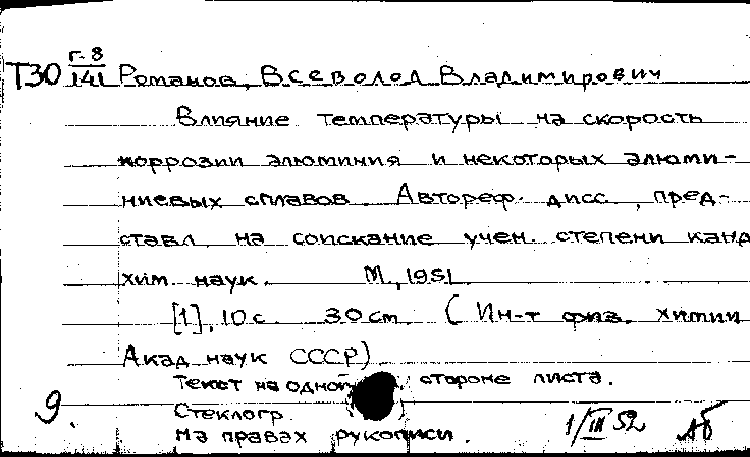 Г-8
Т30 141 Романов, Всеволод Владимирович
Влияние температуры на скорость
коррозии алюминия и некоторых алюми-
ниевых сплавов. Автореф. дисс., пред-
ставл. на соискание учен. степени канд
хим. наук. М., 1951.
[1], 10 с. 30 см. (Ин-т физ. химии
Акад. наук СССР).
Текст на одной стороне листа.
Стеклогр.
На правах рукописи.
9.
1/III 52